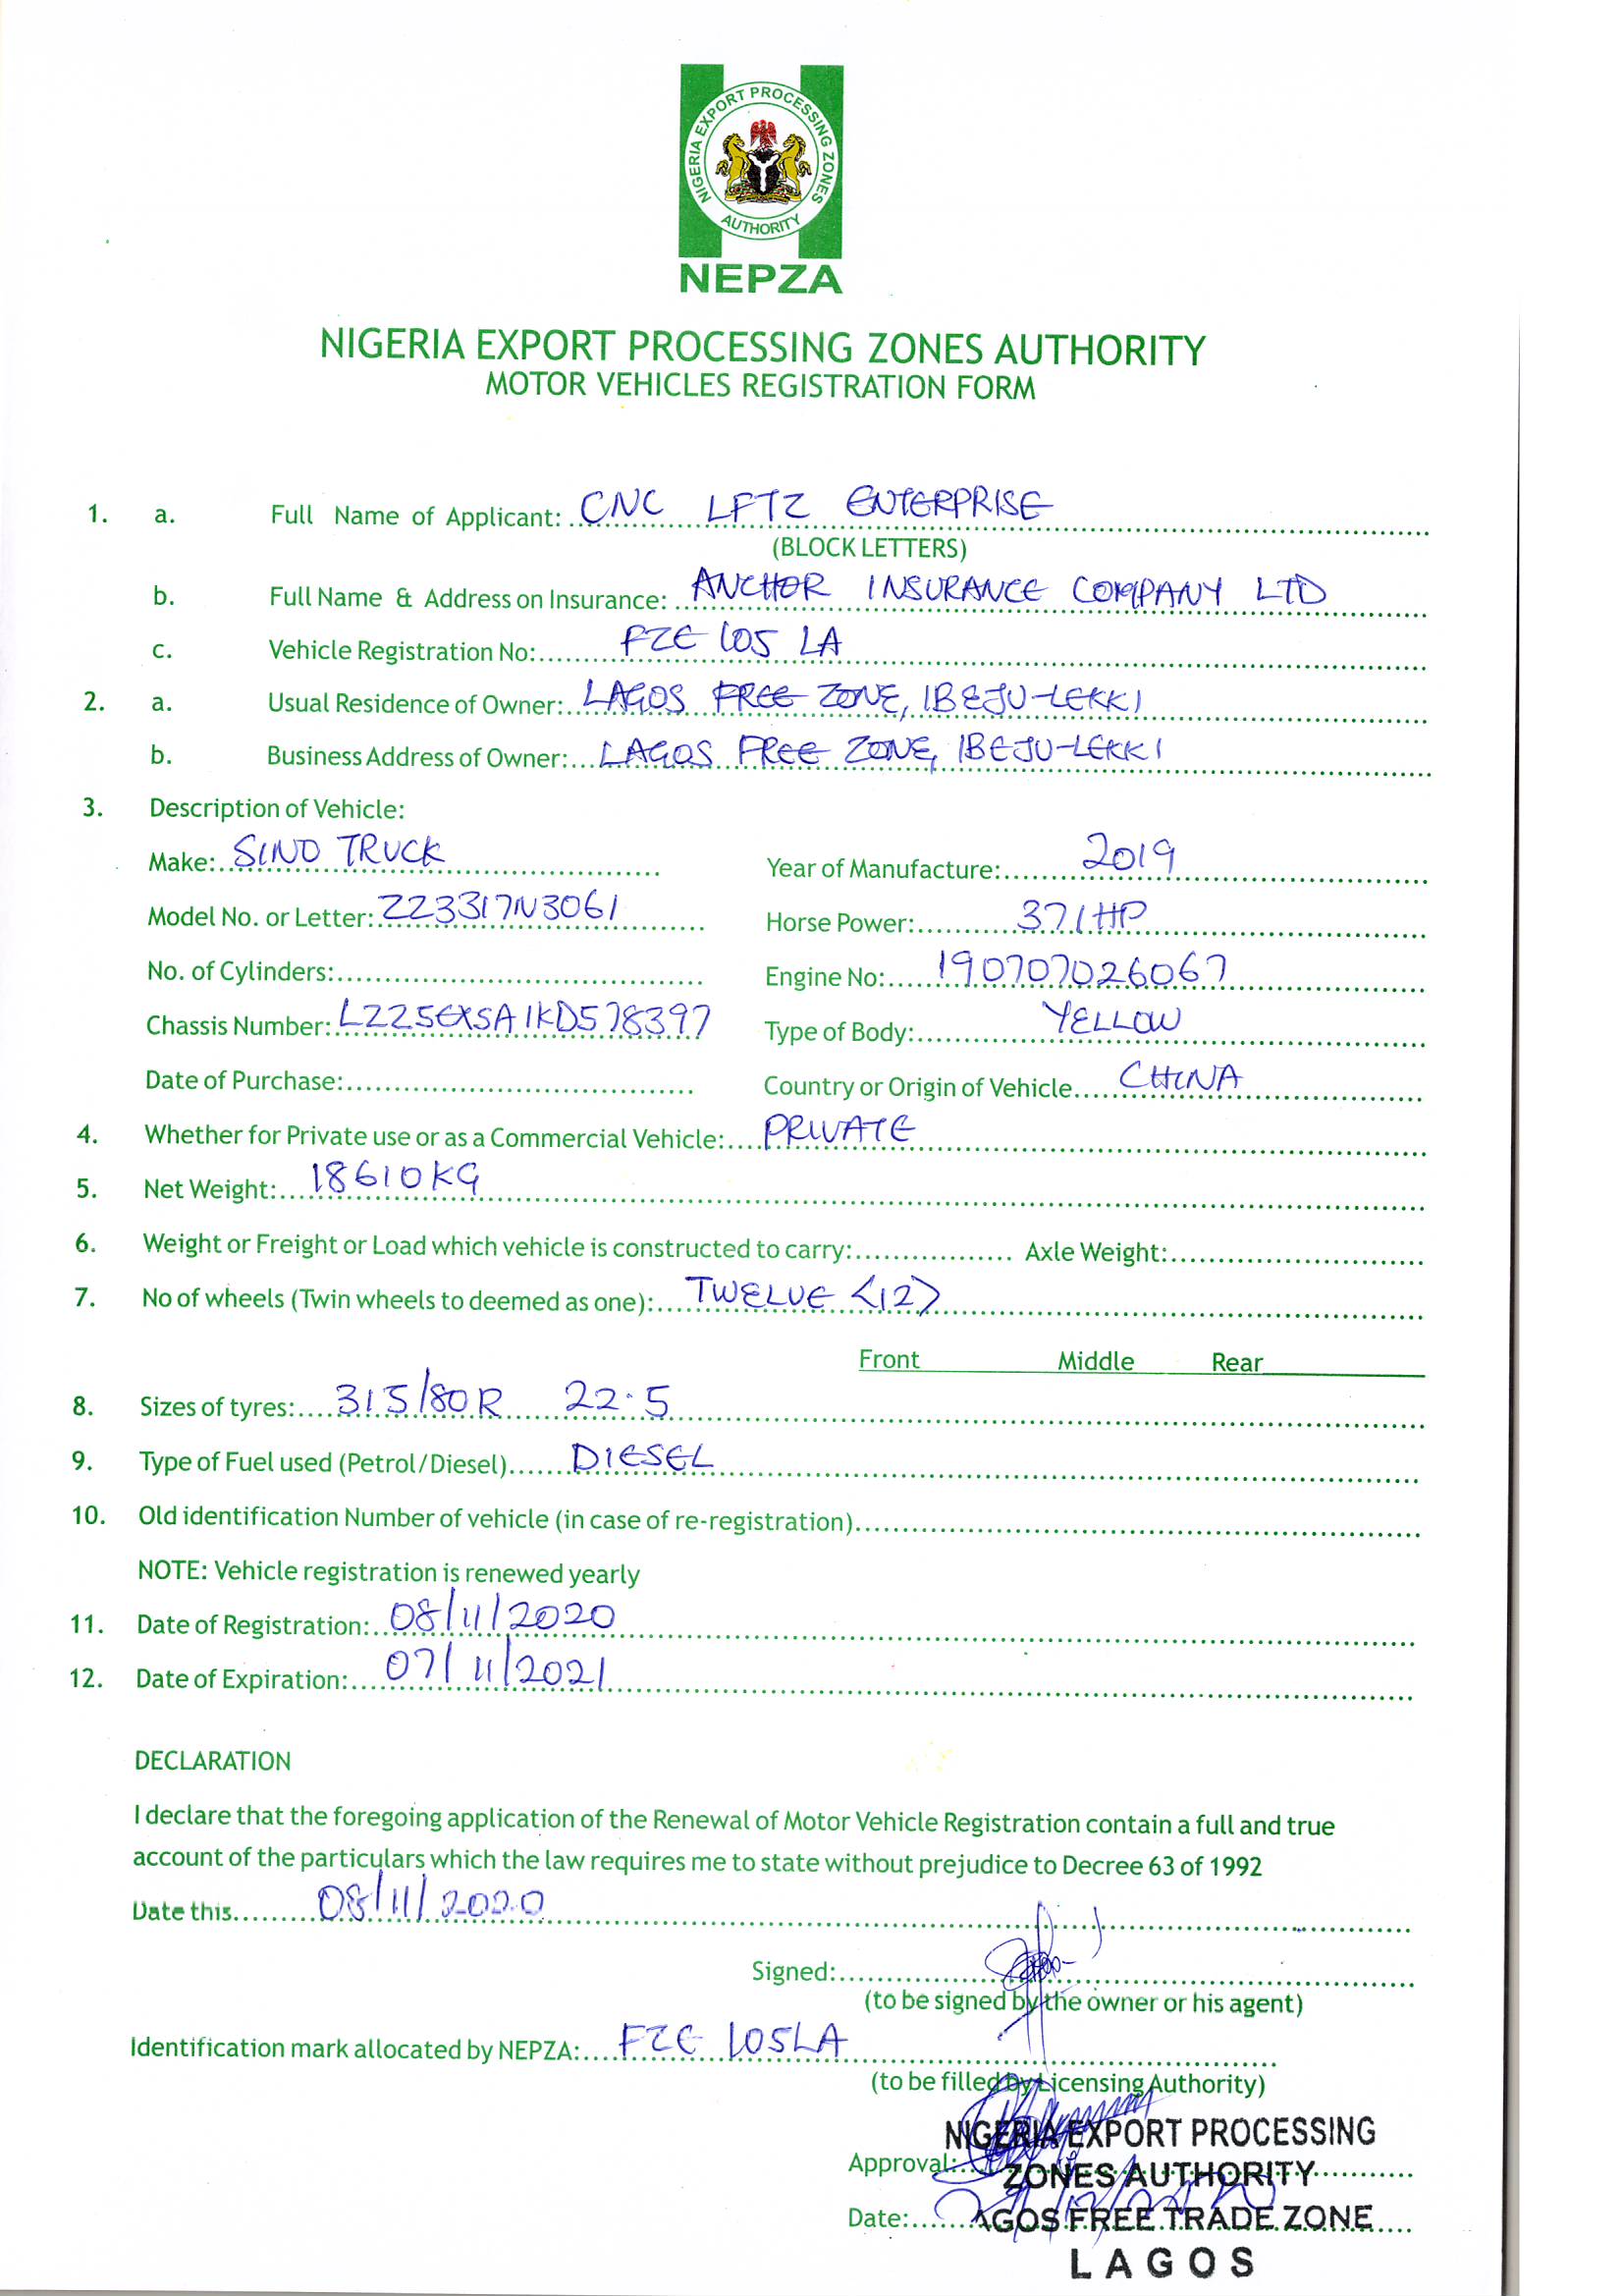 NIGERIA EXPORT PROCESSING ZONES
AUTHORITY
NEPZA
NIGERIA EXPORT PROCESSING ZONES AUTHORITY
MOTOR VEHICLES REGISTRATION FORM
1. a. Full Name of Applicant: CNC LFTZ ENTERPRISE
(BLOCK LETTERS)
b. Full Name & Address on Insurance: ANCHOR INSURANCE COMPANY LTD
c. Vehicle Registration No: FZE 105 LA
2. a. Usual Residence of Owner: LAGOS FREE ZONE, IBEJU-LEKKI
b. Business Address of Owner: LAGOS FREE ZONE, IBEJU-LEKKI
3. Description of Vehicle:
Make: SINO TRUCK Year of Manufacture: 2019
Model No. or Letter: ZZ3317N3061 Horse Power: 371HP
No. of Cylinders: Engine No: 190707026067
Chassis Number: LZZ5EXSA1KD578397 Type of Body: YELLOW
Date of Purchase: Country or Origin of Vehicle CHINA
4. Whether for Private use or as a Commercial Vehicle: PRIVATE
5. Net Weight: 18610KG
6. Weight or Freight or Load which vehicle is constructed to carry: Axle Weight:
7. No of wheels (Twin wheels to deemed as one): TWELVE <12>
Front Middle Rear
8. Sizes of tyres: 315/80R 22.5
9. Type of Fuel used (Petrol/Diesel) DIESEL
10. Old identification Number of vehicle (in case of re-registration)
NOTE: Vehicle registration is renewed yearly
11. Date of Registration: 08/11/2020
12. Date of Expiration: 07/11/2021
DECLARATION
I declare that the foregoing application of the Renewal of Motor Vehicle Registration contain a full and true
account of the particulars which the law requires me to state without prejudice to Decree 63 of 1992
Date this 08/11/2020
Signed:
(to be signed by the owner or his agent)
Identification mark allocated by NEPZA: FZE 105LA
(to be filled by Licensing Authority)
NIGERIA EXPORT PROCESSING
Approval: ZONES AUTHORITY
Date: AGOS FREE TRADE ZONE
LAGOS